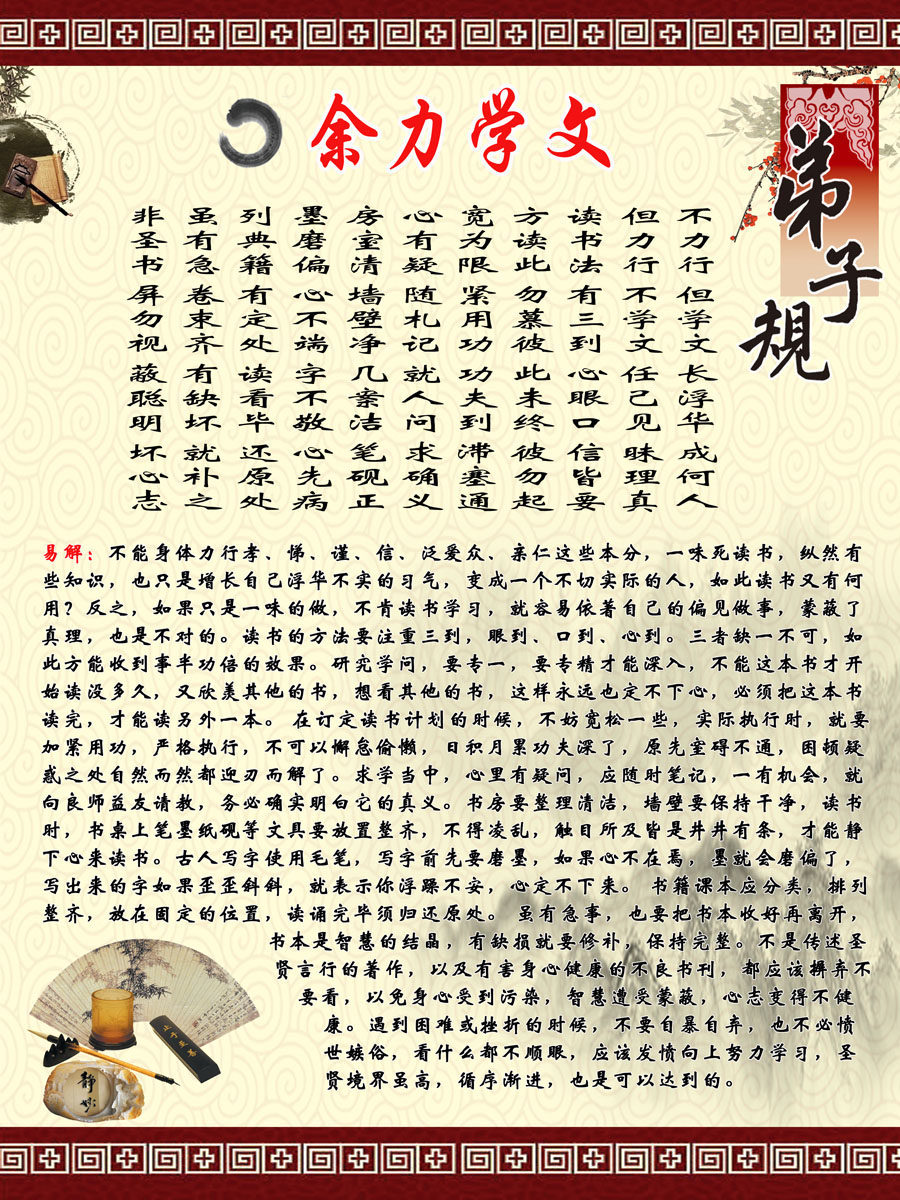 余力学文
弟子規
不力行但学文长浮华成何人
但力行不学文任己见昧理真
读书法有三到心眼口信皆要
方读此勿慕彼此未终彼勿起
宽为限紧用功功夫到滞塞通
心有疑随札记就人问求确义
房室清墙壁净几案洁笔砚正
墨磨偏心不端字不敬心先病
列典籍有定处读看毕还原处
虽有急卷束齐有缺坏就补之
非圣书屏勿视蔽聪明坏心志
易解：不能身体力行孝、悌、谨、信、泛爱众、亲仁这些本分，一味死读书，纵然有
些知识，也只是增长自己浮华不实的习气，变成一个不切实际的人，如此读书又有何
用？反之，如果只是一味的做，不肯读书学习，就容易依著自己的偏见做事，蒙蔽了
真理，也是不对的。读书的方法要注重三到，眼到、口到、心到。三者缺一不可，如
此方能收到事半功倍的效果。研究学问，要专一，要专精才能深入，不能这本书才开
始读没多久，又欣羡其他的书，想看其他的书，这样永远也定不下心，必须把这本书
读完，才能读另外一本。 在订定读书计划的时候，不妨宽松一些，实际执行时，就要
加紧用功，严格执行，不可以懈怠偷懒，日积月累功夫深了，原先窒碍不通，困顿疑
惑之处自然而然都迎刃而解了。求学当中，心里有疑问，应随时笔记，一有机会，就
向良师益友请教，务必确实明白它的真义。书房要整理清洁，墙壁要保持干净，读书
时，书桌上笔墨纸砚等文具要放置整齐，不得凌乱，触目所及皆是井井有条，才能静
下心来读书。古人写字使用毛笔，写字前先要磨墨，如果心不在焉，墨就会磨偏了，
写出来的字如果歪歪斜斜，就表示你浮躁不安，心定不下来。 书籍课本应分类，排列
整齐，放在固定的位置，读诵完毕须归还原处。 虽有急事，也要把书本收好再离开，
书本是智慧的结晶，有缺损就要修补，保持完整。不是传述圣
贤言行的著作，以及有害身心健康的不良书刊，都应该摒弃不
要看，以免身心受到污染，智慧遭受蒙蔽，心志变得不健
康。遇到困难或挫折的时候，不要自暴自弃，也不必愤
世嫉俗，看什么都不顺眼，应该发愤向上努力学习，圣
贤境界虽高，循序渐进，也是可以达到的。
止于至善
静妙